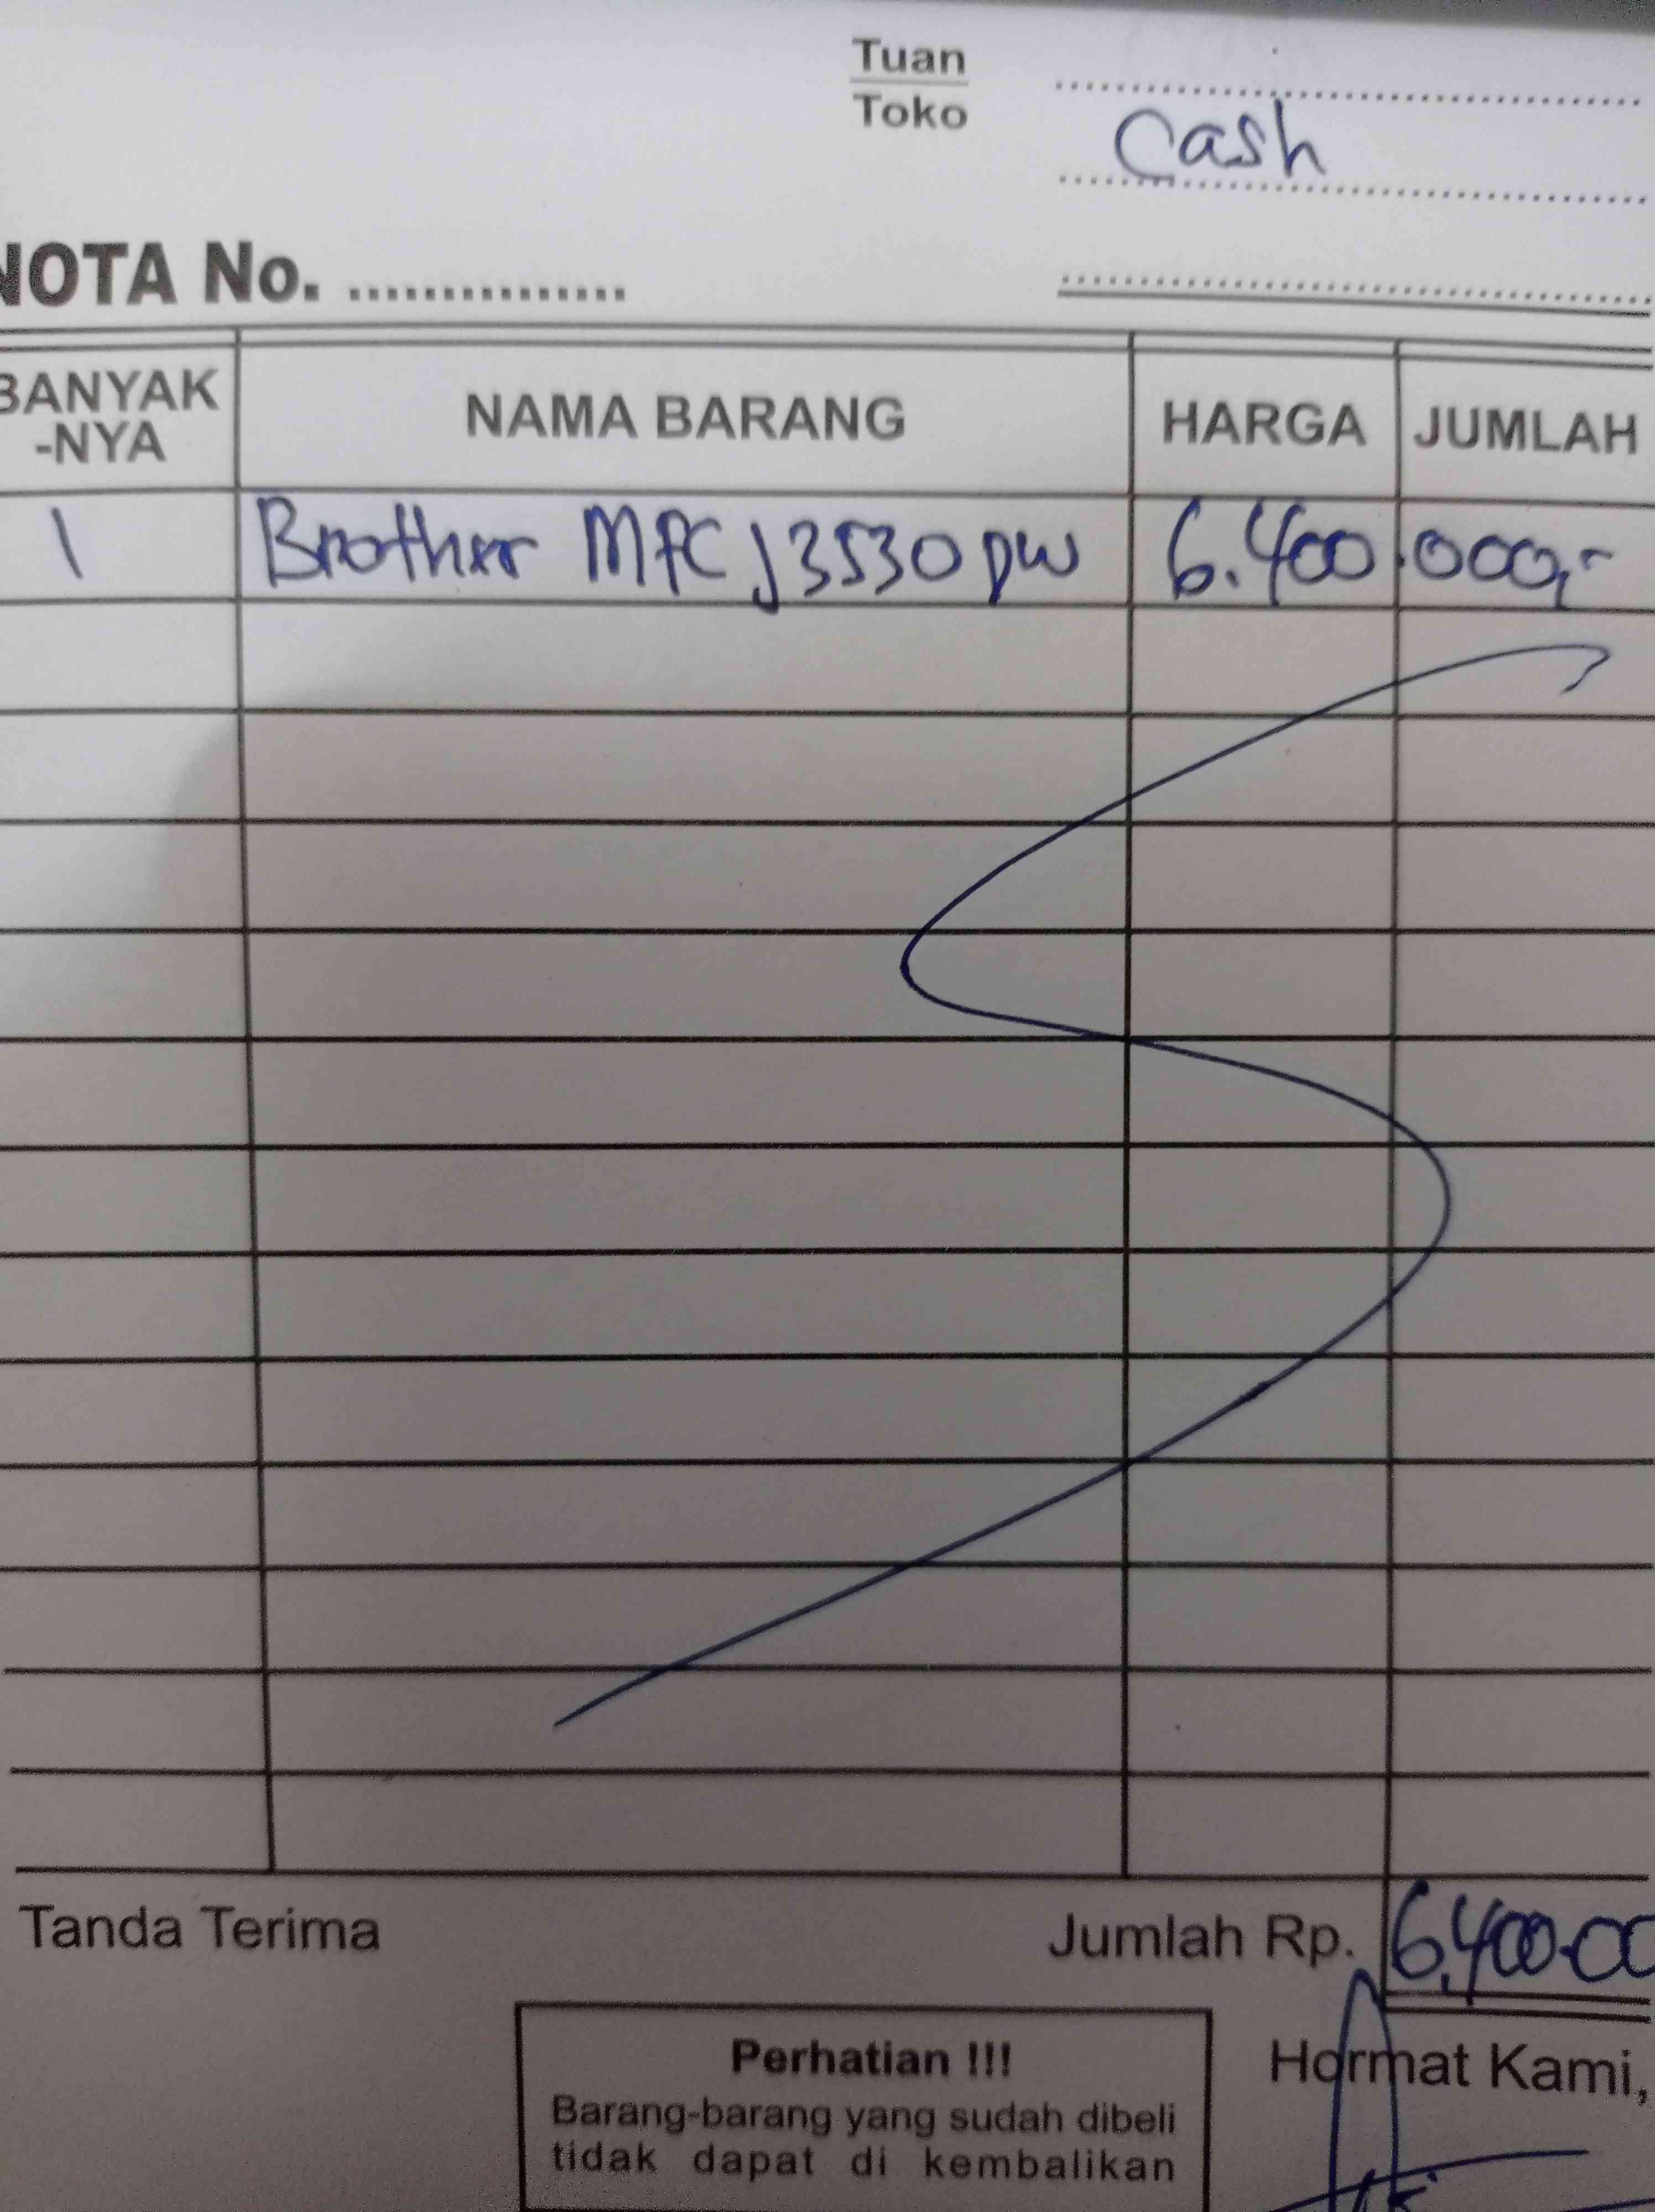 Tuan
Toko
Cash
NOTA No. ...............
BANYAK -NYA NAMA BARANG HARGA JUMLAH
1 Brother MFC J3530 DW 6.400.000,-
Tanda Terima Jumlah Rp. 6.400.00
Perhatian !!! Hormat Kami,
Barang-barang yang sudah dibeli
tidak dapat di kembalikan